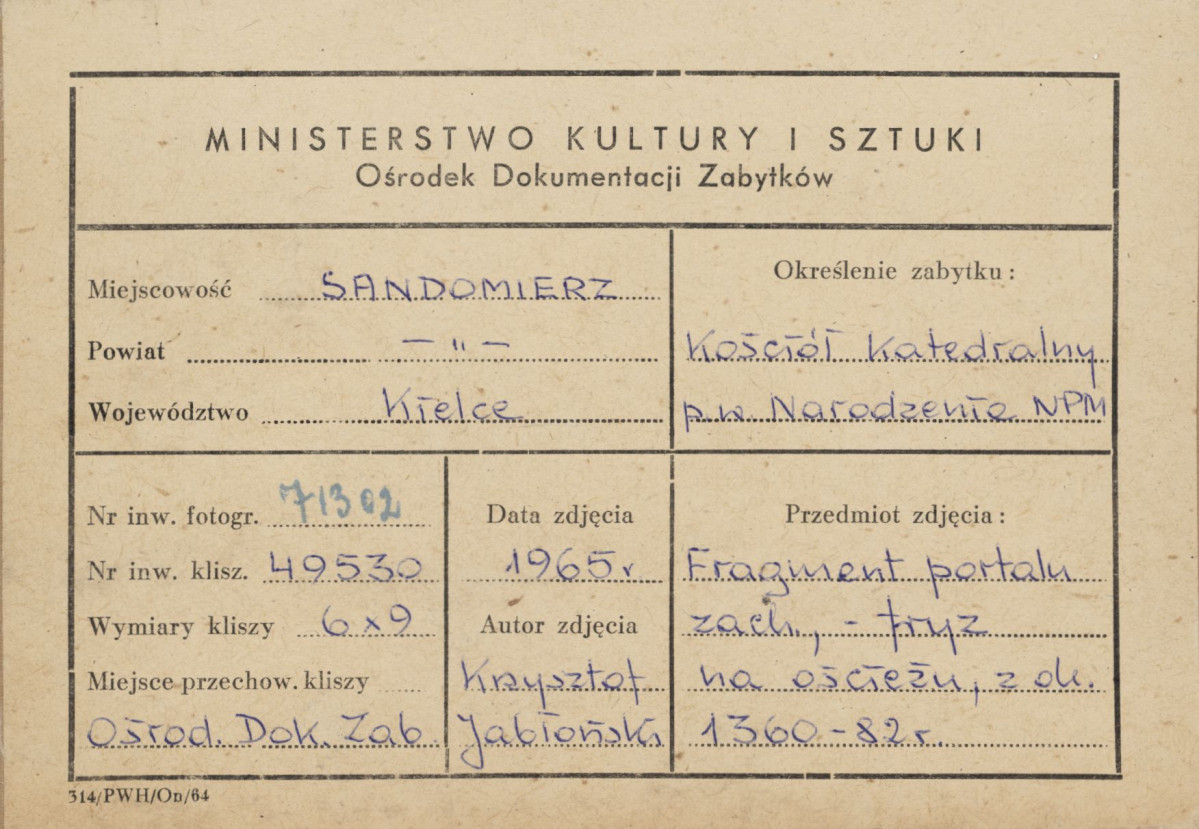 MINISTERSTWO KULTURY I SZTUKI
Ośrodek Dokumentacji Zabytków
Miejscowość SANDOMIERZ
Powiat — " —
Województwo Kielce
Określenie zabytku:
Kościół Katedralny
p.w. Narodzenia NPM
Nr inw. fotogr. 71302
Nr inw. klisz. 49530
Wymiary kliszy 6x9
Miejsce przechow. kliszy
Ośrod. Dok. Zab.
Data zdjęcia
1965 r
Autor zdjęcia
Krzysztof
Jabłoński
Przedmiot zdjęcia:
Fragment portalu
zach., - fryz
na ościeżu, z ok.
1360-82 r.
314/PWH/On/64